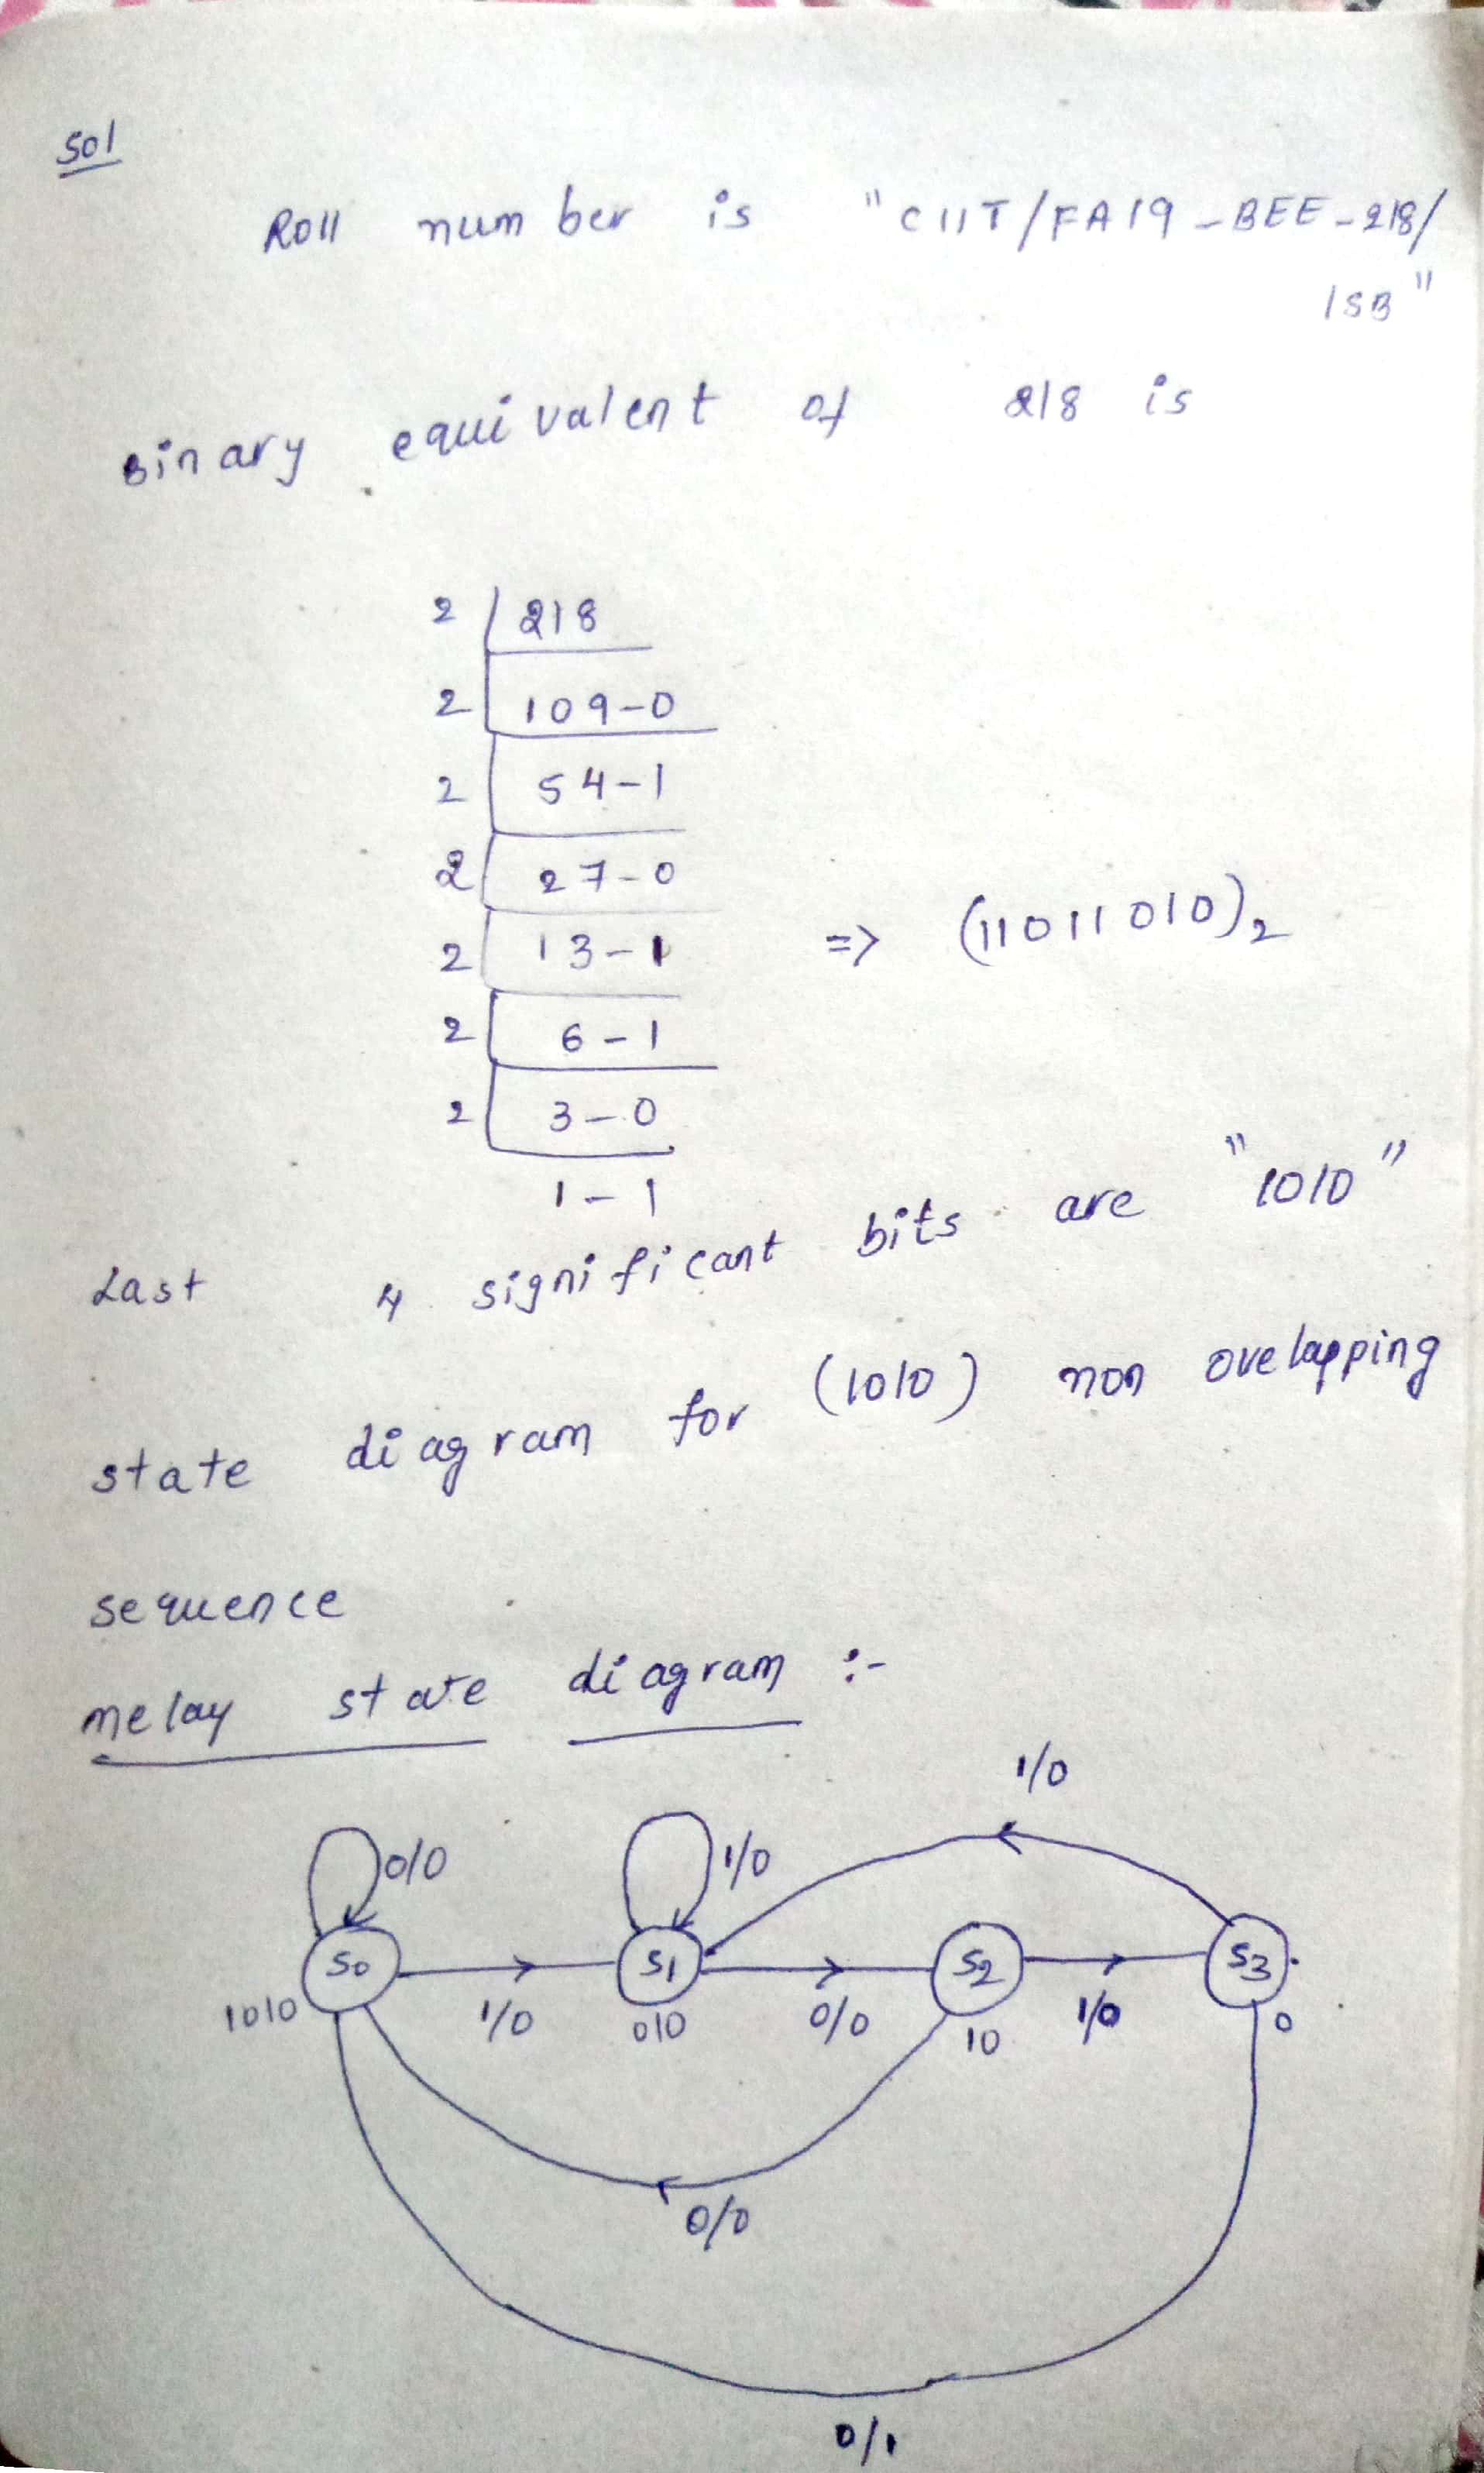 Sol
Roll number is "CIIT/FA19-BEE-218/
ISB"
Binary equivalent of 218 is
2 218
2 109-0
2 54-1
2 27-0
2 13-1 => (11011010)2
2 6-1
2 3-0
1-1
Last 4 significant bits are "1010"
state diagram for (1010) non ovelapping
sequence
melay state diagram :-
1/0
0/0 1/0
S0 S1 S2 S3
1010 1/0 010 0/0 10 1/0 0
0/0
0/1